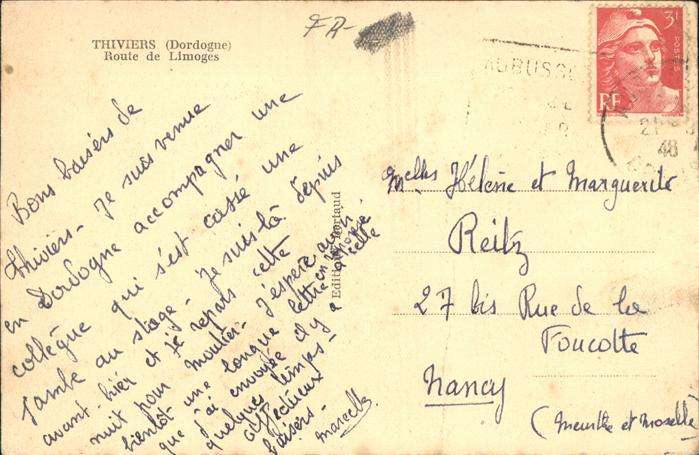 THIVIERS (Dordogne)
Route de Limoges
FA-
Bons baisers de
Thiviers - Je suis venue
en Dordogne accompagner une
collègue qui s'est cassé une
jambe au stage - Je suis là depuis
avant hier et je repars cette
nuit pour Moutier - J'espère avoir
bientôt une longue lettre en réponse
que j'ai envoyée il y a
quelques temps -
affectueux
baisers -
Marcelle
Editions
3F
POSTES
RF
AUBUSSO
21
48
Melles Hélène et Marguerite
Reitz
27 bis Rue de la
Foucotte
Nancy
(Meurthe et Moselle)